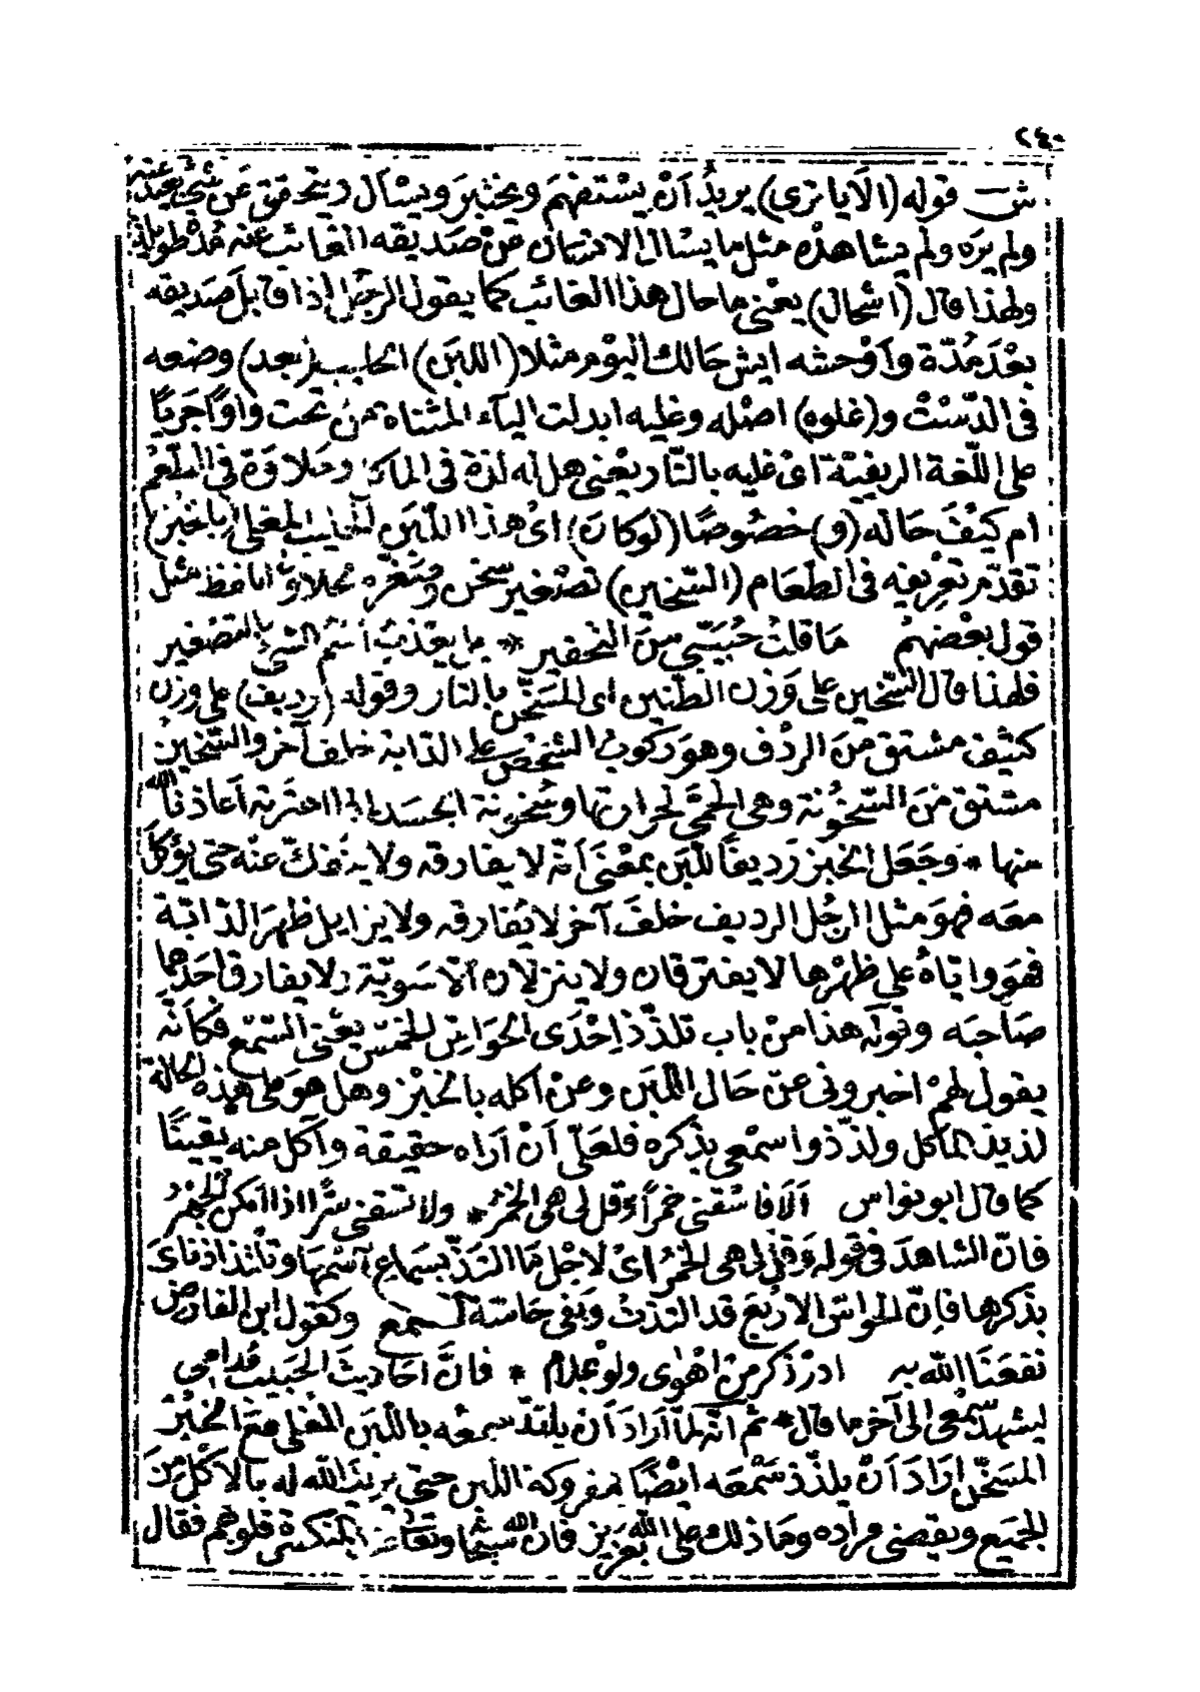 ٢٤٠
ش قوله (الا يا ترى) يريدُ اَنْ يسْتفهمَ ويختبرَ ويسْأل ويتحقق عَن شئ بعيد عنه
ولم يرَه ولم يشاهدْه مثل ما يسْال الانسان عنْ صَديقه الغائب عنه مُدْ طويلة
ولهذا قال (اشحال) يعْنى ما حال هذا الغائب كما يقول الرجُل اذا قابل صَديقه
بعْدَ مُدّة وَاَوْحشه ايش حَالك اليوْم مثلا (اللبَن) الحليب (بعد) وضعه
فى الدّسْتْ و(غلوه) اصْله وغليه ابدلت الياء المثناة من تحت واوًا جَريًا
على اللّغة الريفيّة اىْ غليه بالنّار يعْنى هل له لذة فى المأكل وحَلاوَة فى المطعْم
ام كيْفَ حَاله (و) خصُوصًا (لوكان) اىْ هذا اللّبَن الحليب المغلى (باخبز)
تقدّم تعْريفه فى الطعَام (السّخين) تصْغير سخن ومُصَغّره محلا وَّ انا فظ مثل
قول بعْضهمْ ما قلتُ حُبَيّبي منَ التحقير * بل يعْذبُ اسْمُ الشئ بالتصْغير
فلهذا قال السّخين على وَزن الطّنين اى المسَخّن بالنار وقوله (رديف) على وزن
كثيْف مشتق منَ الردْف وهوَ ركوبُ الشخص على الدّابة خلف آخر والسّخين
مشتق منَ السّخُونة وهى الحمّى لحرارتها وسُخونة الجسَد بها اعاذنا الله
منها * وَجَعَل الخبز رَديفًا للّبَن بمعْنَى اَنّه لا يفارقه ولا ينفكّ عنْه حتى يؤكلَ
معَه فهوَ مثل الرجُل الرديف خلفَ آخر لا يُفارقه ولا يزايل ظهرَ الدّابّة
فهوَ وايّاهُ على ظهرْها لا يفترقان ولا ينزلان الّا سَويّة ولا يفارق احَدهما
صَاحبَه وقوله هذا منْ باب تلذّذ اِحْدَى الحوَاسّ الخمْس يعْنى السّمْع فكأنّه
يقول لهمْ اخبرونى عن حَال اللبَن وعنْ اكله بالخبْز وهل هوَ على هذه الحالة
لذيذ المأكل ولذّذوا سمْعى بذكره فلعَلّى اَنْ اَراه حقيقة وآكل منه يقينًا
كما قال ابو نواس اَلَا فاسْقنى خمراً وَقل لى هى الخمْرُ * ولا تسْقنى سّرًّا اذا امكن الجهْرُ
فانّ الشاهدَ فى قوله وَقل لى هى الخمْرُ اىْ لاجْل مَا التذّ بسَماع اسْمها وتلتذ اذناىَ
بذكرها فاِنّ الحواسّ الاربْعَ قد التذتْ وَبقى حَاسّة السّمْع وكقول ابن الفارض
نفعَنَا الله به ادرْ ذكر منْ اهْوى ولو بملام * فانَّ احَاديثَ الحَبيب مُدامى
ليشهدَ سمْعى الى آخر ما قال * ثم انّه لمّا اَرادَ اَن يلتذّ سمعُه باللّبَن المغلى معَ الخبْز
المسَخّن اَرَادَ اَنْ يلذّذ سَمْعَه ايضًا بمفروكة اللّبن حتى يريدَ الله له بالاكْل منَ
الجميَع ويقضى مراده وما ذلك على الله بعَزيز فان الله سبحانه وتعالى عند المنكسرة قلوبهم فقال